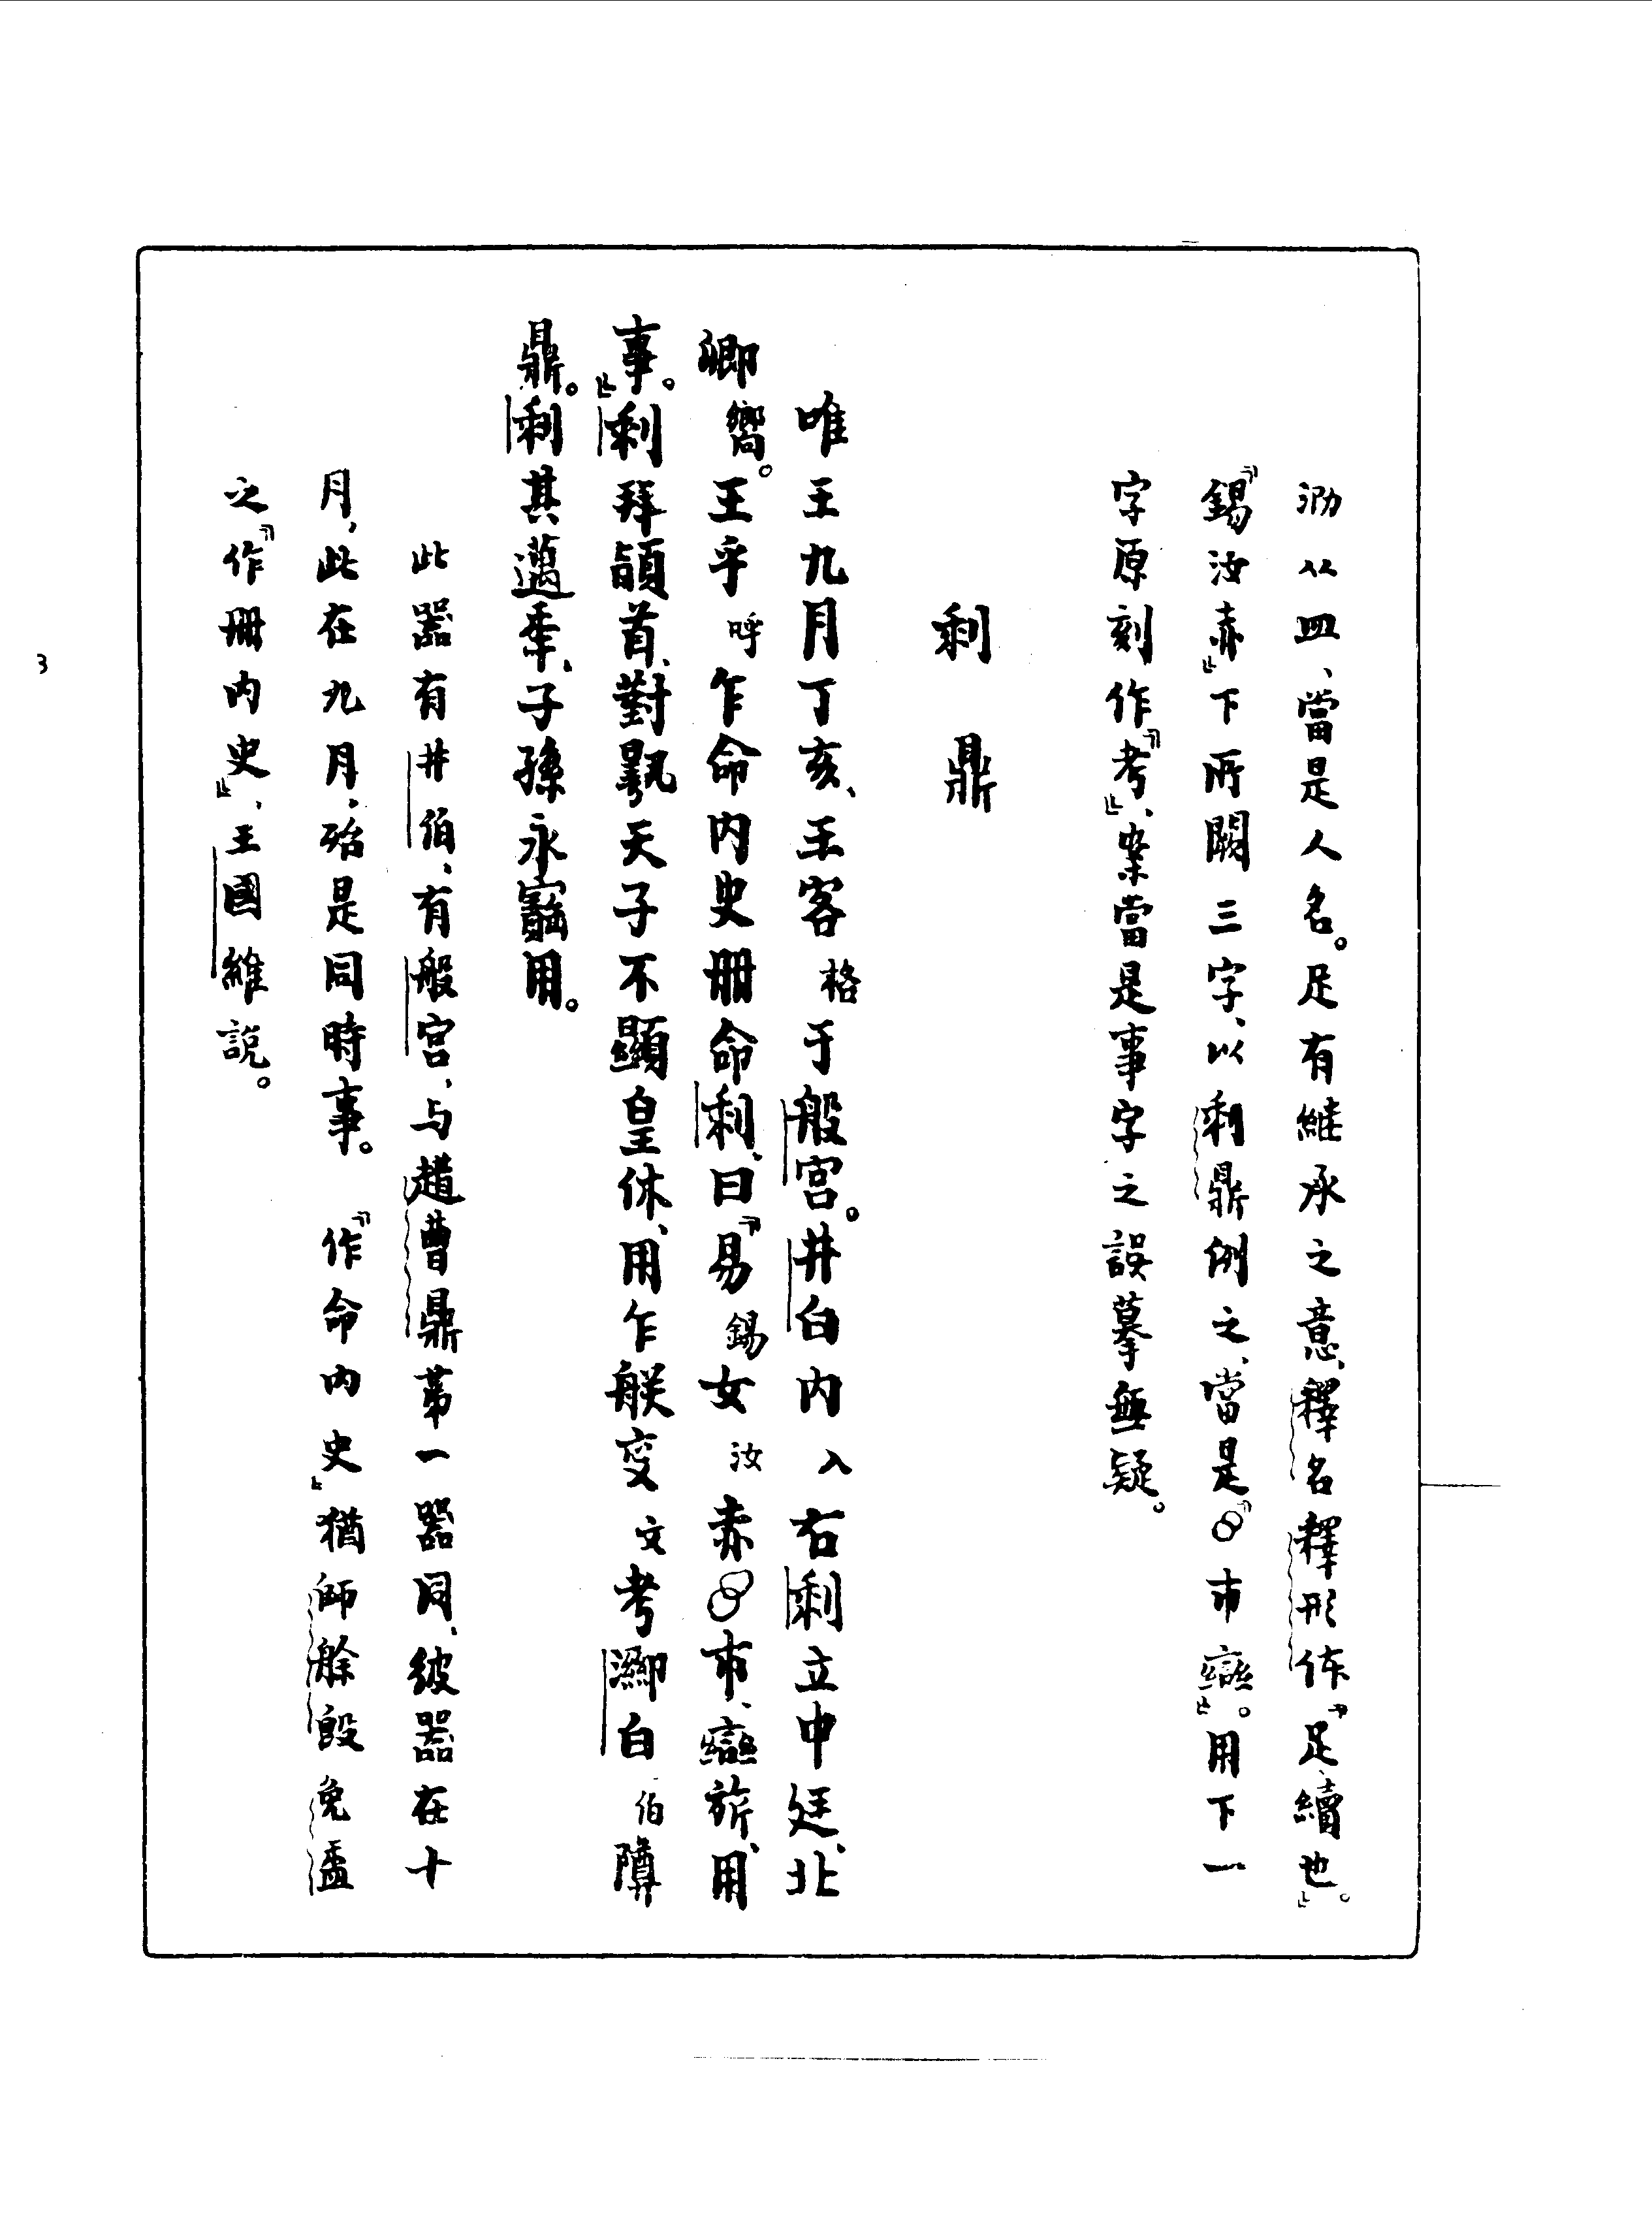 泐从皿、當是人名。足有繼承之意、釋名釋形体『足、續也』。
『錫汝赤』下所闕三字、以利鼎例之、當是『市䜌』。用下一
字原刻作『考』、案當是事字之誤摹無疑。
利鼎
唯王九月丁亥、王客格于般宮。井白內入右利立中廷、北
卿嚮。王乎呼乍命內史冊命利、曰『易錫女汝赤市、䜌旂、用
事。』利拜頴首、對揚天子不顯皇休、用乍朕文考白伯隣
鼎。利其邁年、子孫永寶用。
此器有井伯、有般宮、与趞曹鼎第一器同、彼器在十
月、此在九月、殆是同時事。『作命內史』猶師艅𣪘免盉
之『作冊內史』、王國維說。
3